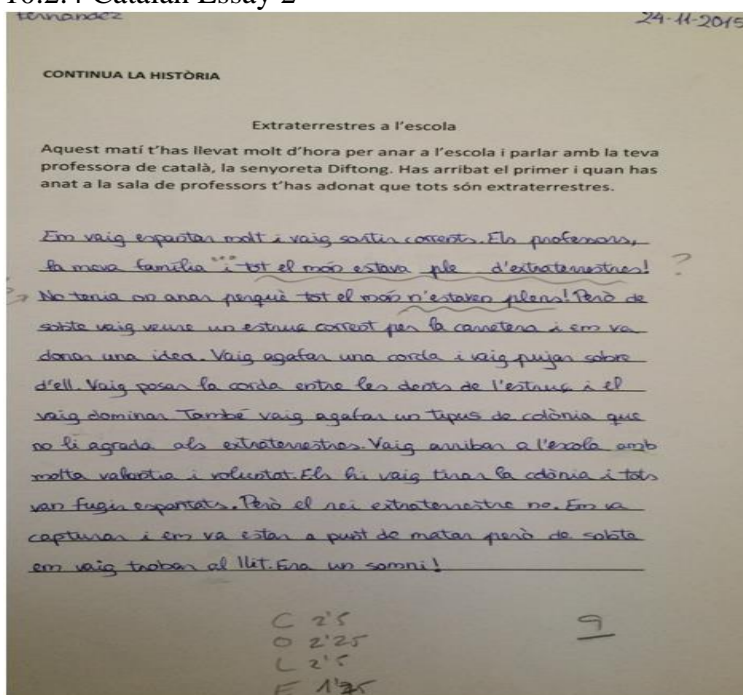 10.2.4 Catalan Essay 2
fernandez 24-11-2015
CONTINUA LA HISTÒRIA
Extraterrestres a l'escola
Aquest matí t'has llevat molt d'hora per anar a l'escola i parlar amb la teva
professora de català, la senyoreta Diftong. Has arribat el primer i quan has
anat a la sala de professors t'has adonat que tots són extraterrestres.
Em vaig espantar molt i vaig sortir corrents. Els professors,
la meva família... i tot el món estava ple d'extraterrestres! ?
No tenia on anar perquè tot el món n'estaven plens! Però de
sobte vaig veure un estruç corrent per la carretera i em va
donar una idea. Vaig agafar una corda i vaig pujar sobre
d'ell. Vaig posar la corda entre les dents de l'estruç i el
vaig dominar. També vaig agafar un tipus de colònia que
no li agrada als extraterrestres. Vaig arribar a l'escola amb
molta valentia i voluntat. Els hi vaig tirar la colònia i tots
van fugir espantats. Però el rei extraterrestre no. Em va
capturar i em va estar a punt de matar però de sobte
em vaig trobar al llit. Era un somni!
C 2'5
O 2'25 9
L 2'5
E 1'75